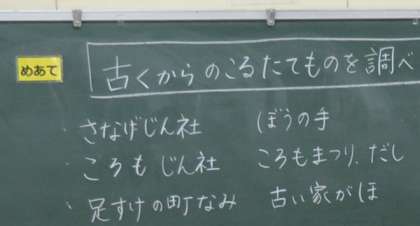 めあて
古くからのこるたてものを調べ
・さなげじん社 ぼうの手
・ころもじん社 ころもまつり、だし
・足すけの町なみ 古い家がほ